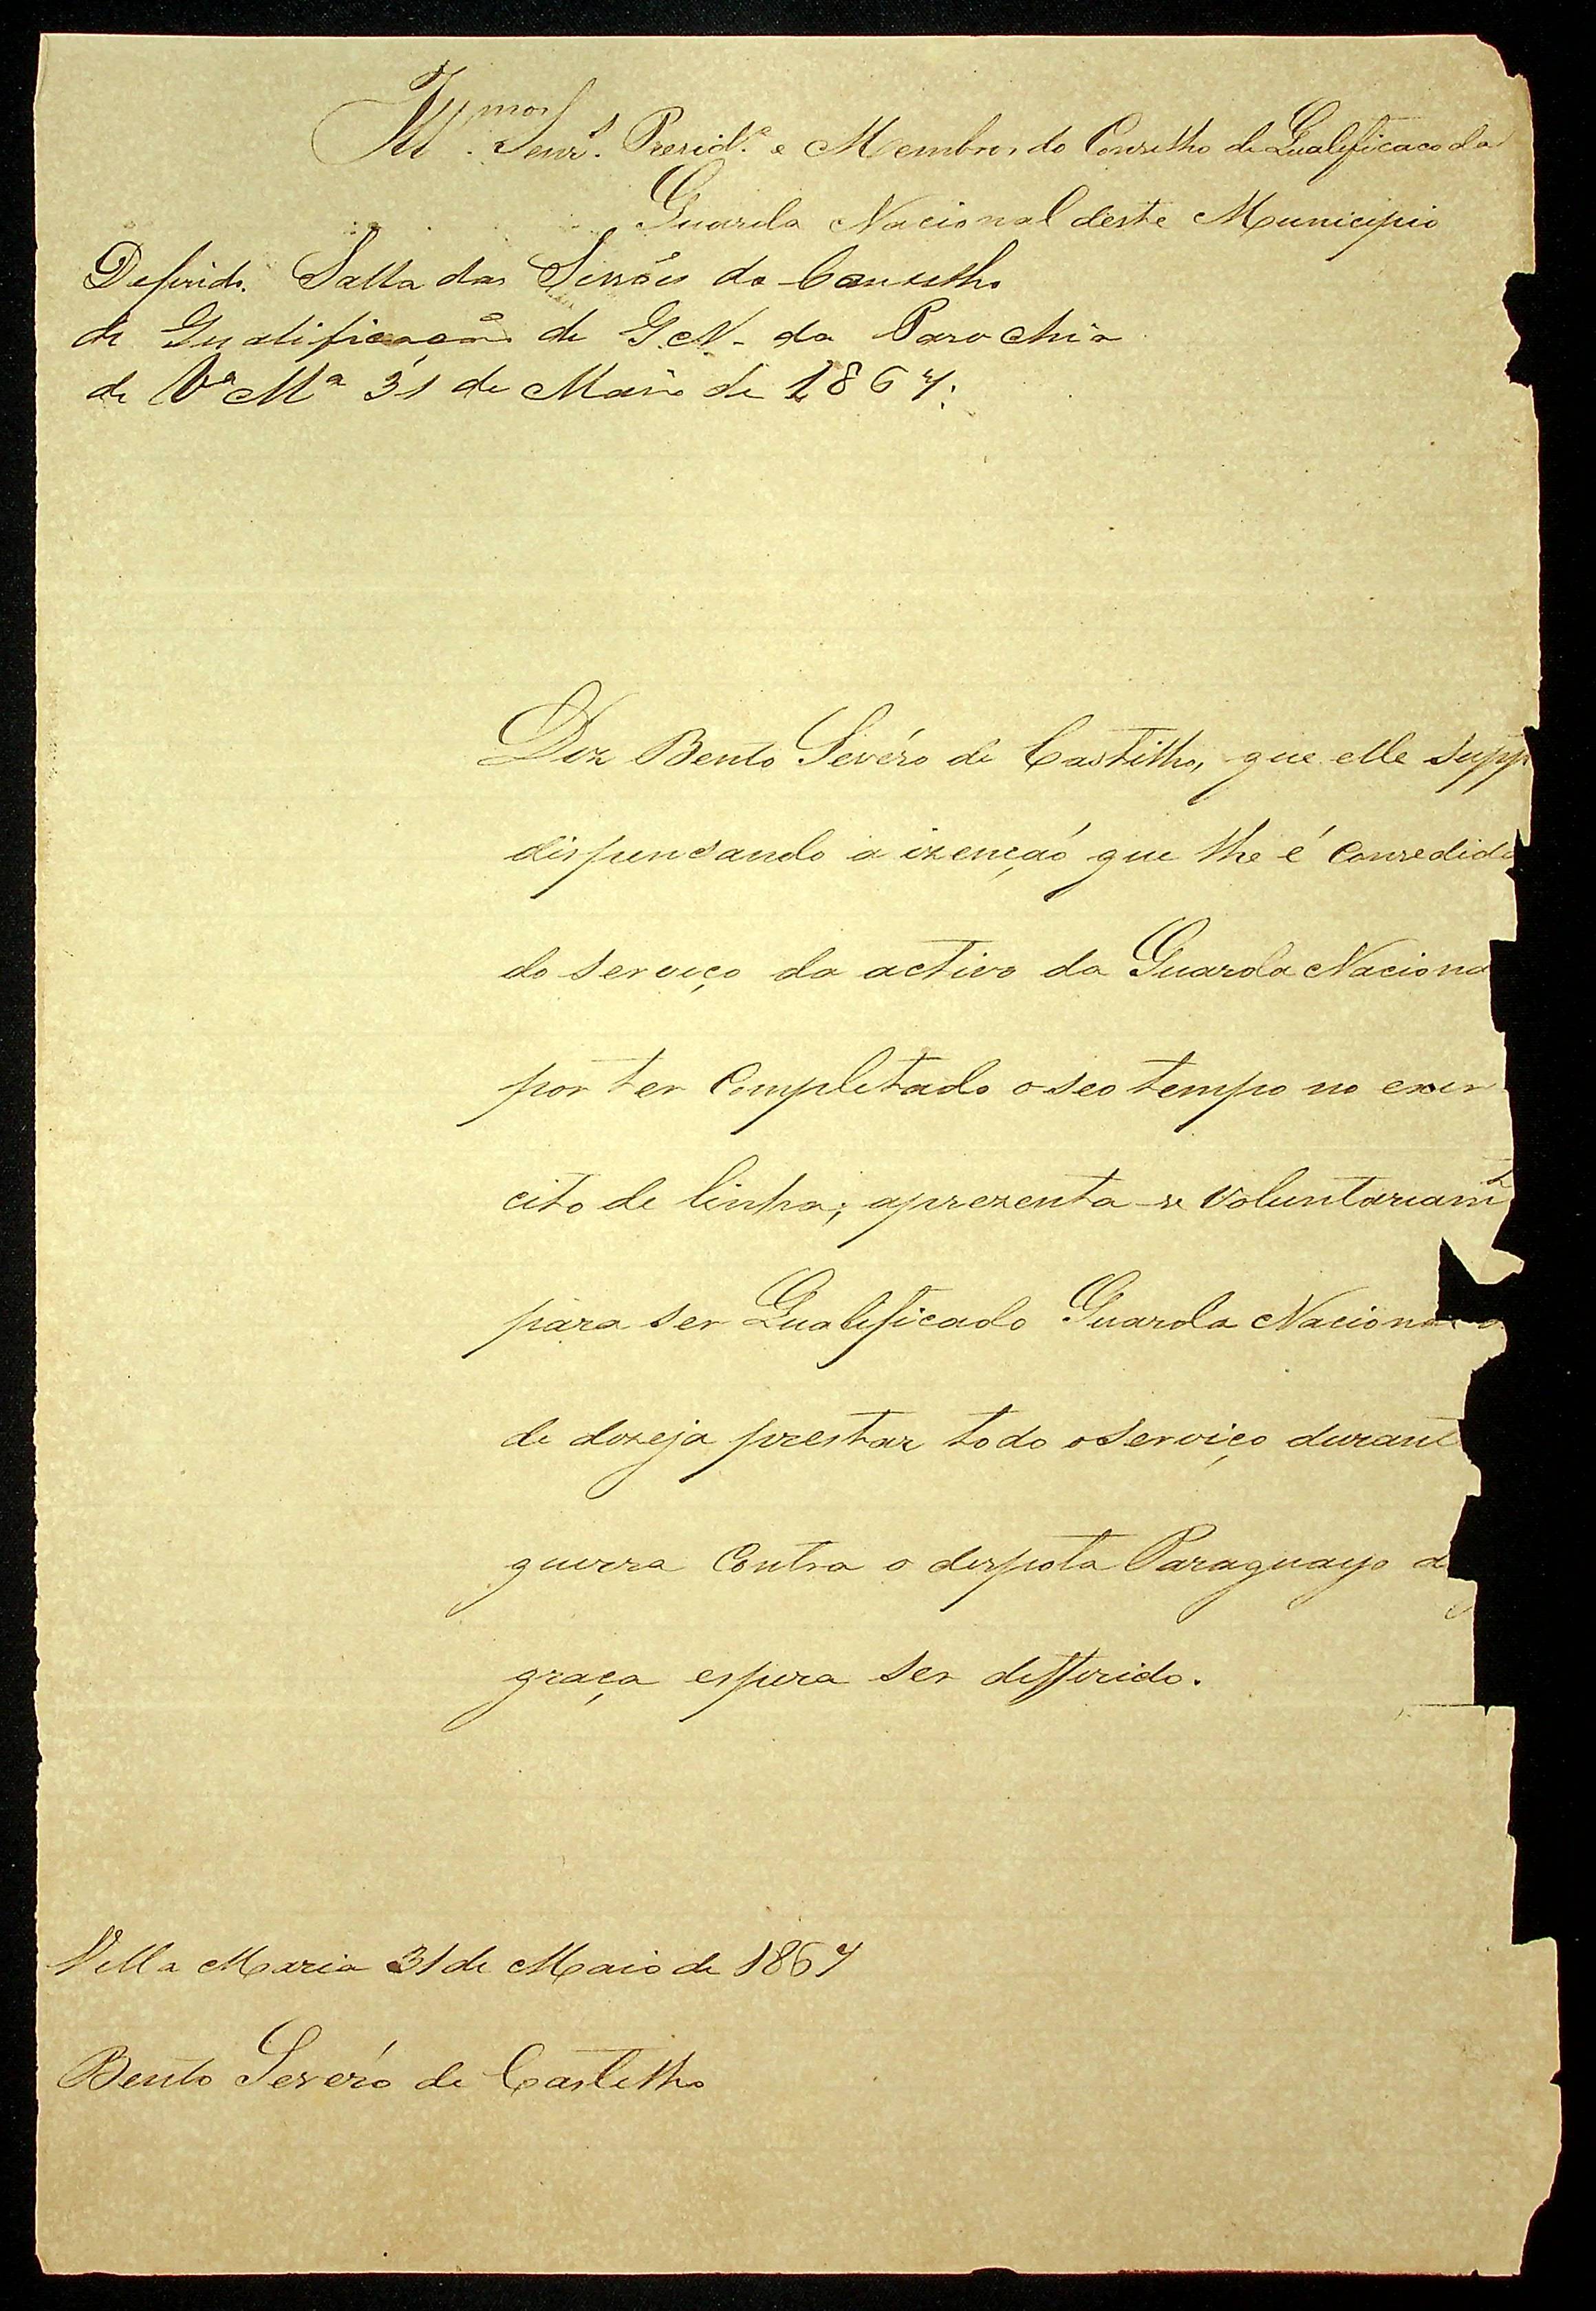 Ill.mos Senr.s Presid.e e Membros do Conselho de Qualificaco da
Guarda Nacional deste Municipio
Deferido. Salla das Sessões do Conselho
de Qualificação de G. N. da Parochia
de Va Ma 31 de Maio de 1867.
Diz Bento Sevéro de Castilho, que elle supp
dispensando a izenção que lhe é consedida
do serviço da activo da Guarda Naciona
por ter Completado o seo tempo no exer
cito de linha; aprezenta-se voluntariamt
para ser Qualificado Guarda Naciona
de dozeja prestar todo o serviço durant
guerra Contra o despota Paraguayo
graça espera ser defferido.
Villa Maria 31 de Maio de 1867
Bento Sevéro de Castilho